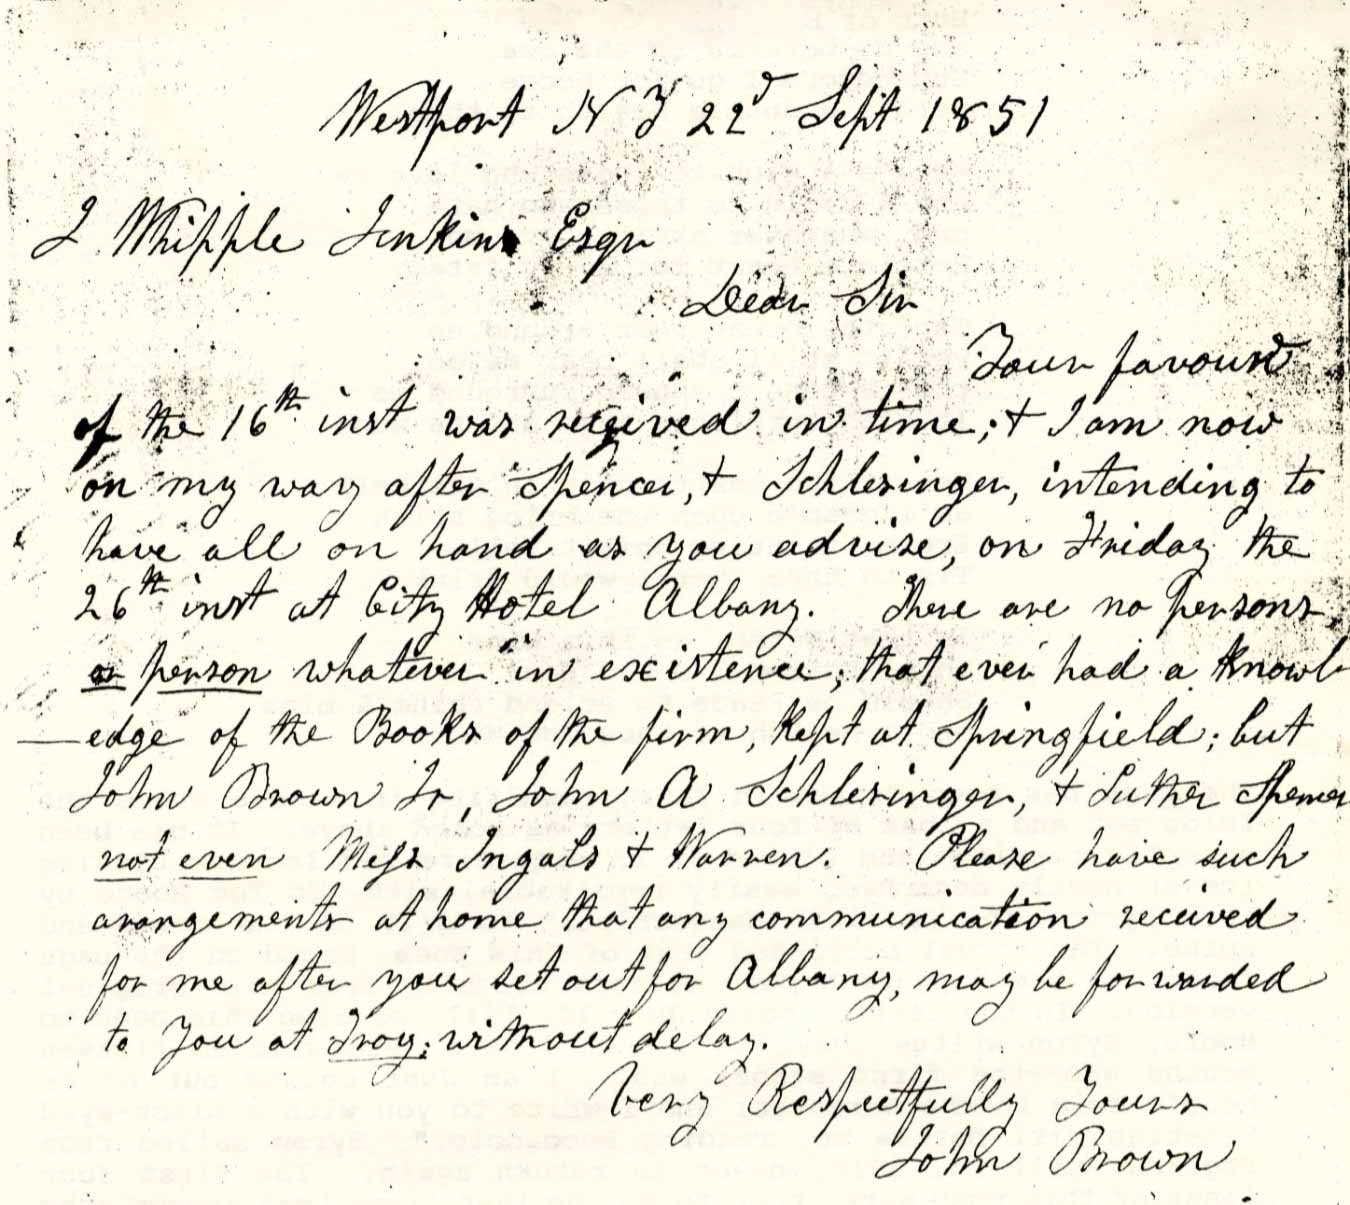 Westport N Y 22d Sept 1851
J Whipple Jenkins Esqr
Dear Sir
Your favour
of the 16th inst was received in time; & I am now
on my way after Spencer, & Schlesinger, intending to
have all on hand as you advise, on Friday the
26th inst at City Hotel Albany. There are no persons
or person whatever in existence, that ever had a knowl
—edge of the Books of the firm, kept at Springfield; but
John Brown Jr, John A Schlesinger, & Luther Spencer
not even Mess Ingals & Warren. Please have such
arangements at home that any communication received
for me after you set out for Albany, may be forwarded
to You at Troy; without delay.
Very Respectfully Yours
John Brown